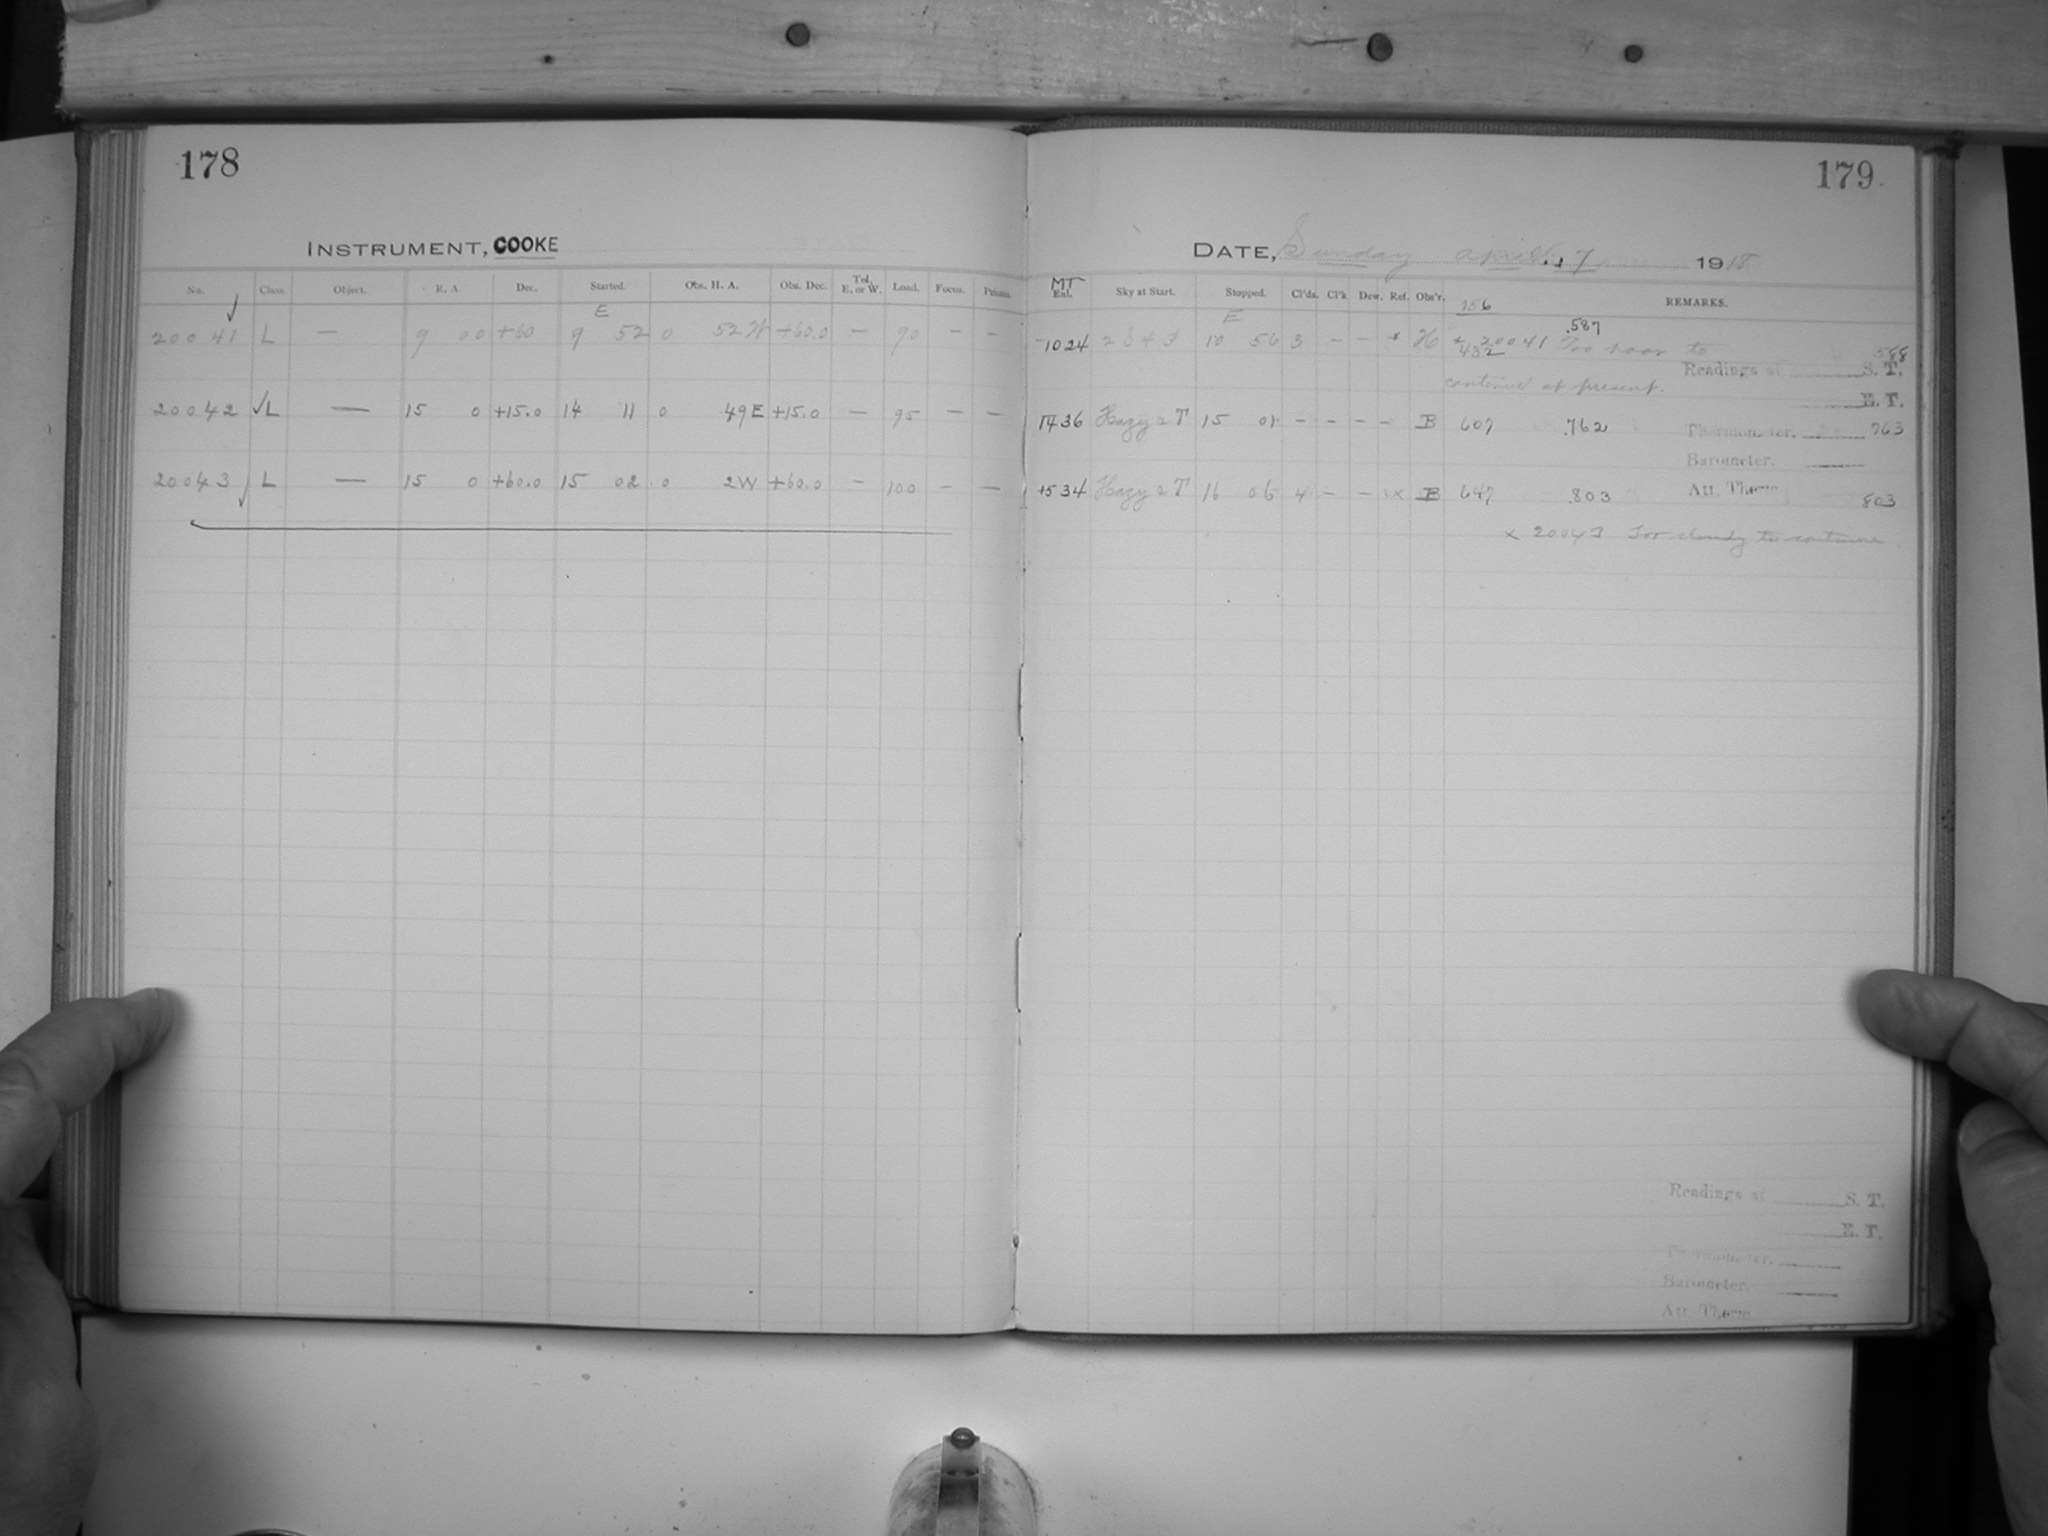 178
INSTRUMENT, COOKE
No. Class. Object. R. A. Dec. Started. Obs. H. A. Obs. Dec. Tel. E. or W. Load. Focus. Prisms.
E
20041 L — 9 00 +60 9 52 0 52 W +60.0 — 90 — —
20042 ✓ L — 15 0 +15.0 14 11 0 49 E +15.0 — 95 — —
20043 L — 15 0 +60.0 15 02 0 2 W +60.0 — 100 — —
179
DATE, Sunday April 7 1918
MT
Exl. Sky at Start. Stopped. Cl'ds. Cl'k Dew. Ref. Obs'r. REMARKS.
756
E
.587
1024 10 56 3 — — * H * 20041 Too poor to
432 588
Readings at S. T.
continue at present.
E. T.
1436 Hazy 2 T 15 01 — — — — B 607 .762 Thermometer. 763
Barometer.
1534 Hazy 2 T 16 06 4 — — x B 647 .803 Att. Therm 803
x 20043 Too cloudy to continue
Readings at S. T.
E. T.
Thermometer.
Barometer.
Att. Therm